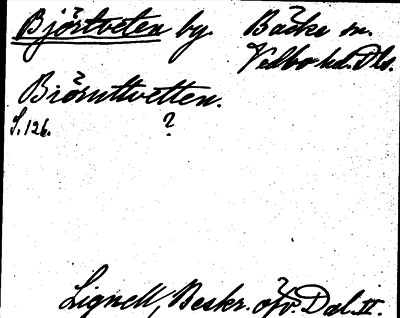 Björtveten by. Bäcke sn.
Vedbo hd. Dls.
Biörnttvetten.
S. 126. ?
Lignell, Beskr. öfv. Dal. II.